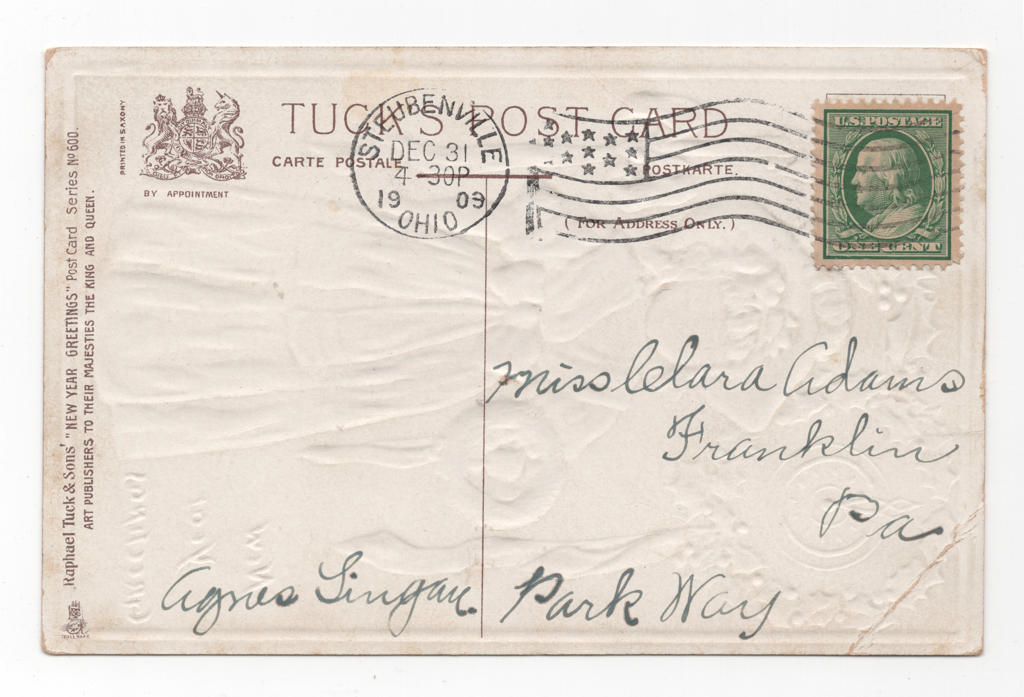 TUCK'S POST CARD
CARTE POSTALE
POSTKARTE.
(FOR ADDRESS ONLY.)
BY APPOINTMENT
PRINTED IN SAXONY
Raphael Tuck & Sons' "NEW YEAR GREETINGS" Post Card Series Nº 600.
ART PUBLISHERS TO THEIR MAJESTIES THE KING AND QUEEN.
STEUBENVILLE
DEC 31
4-30P
1909
OHIO
U.S. POSTAGE
ONE CENT
Miss Clara Adams
Franklin
Pa
Agnes Park Way
New
Year